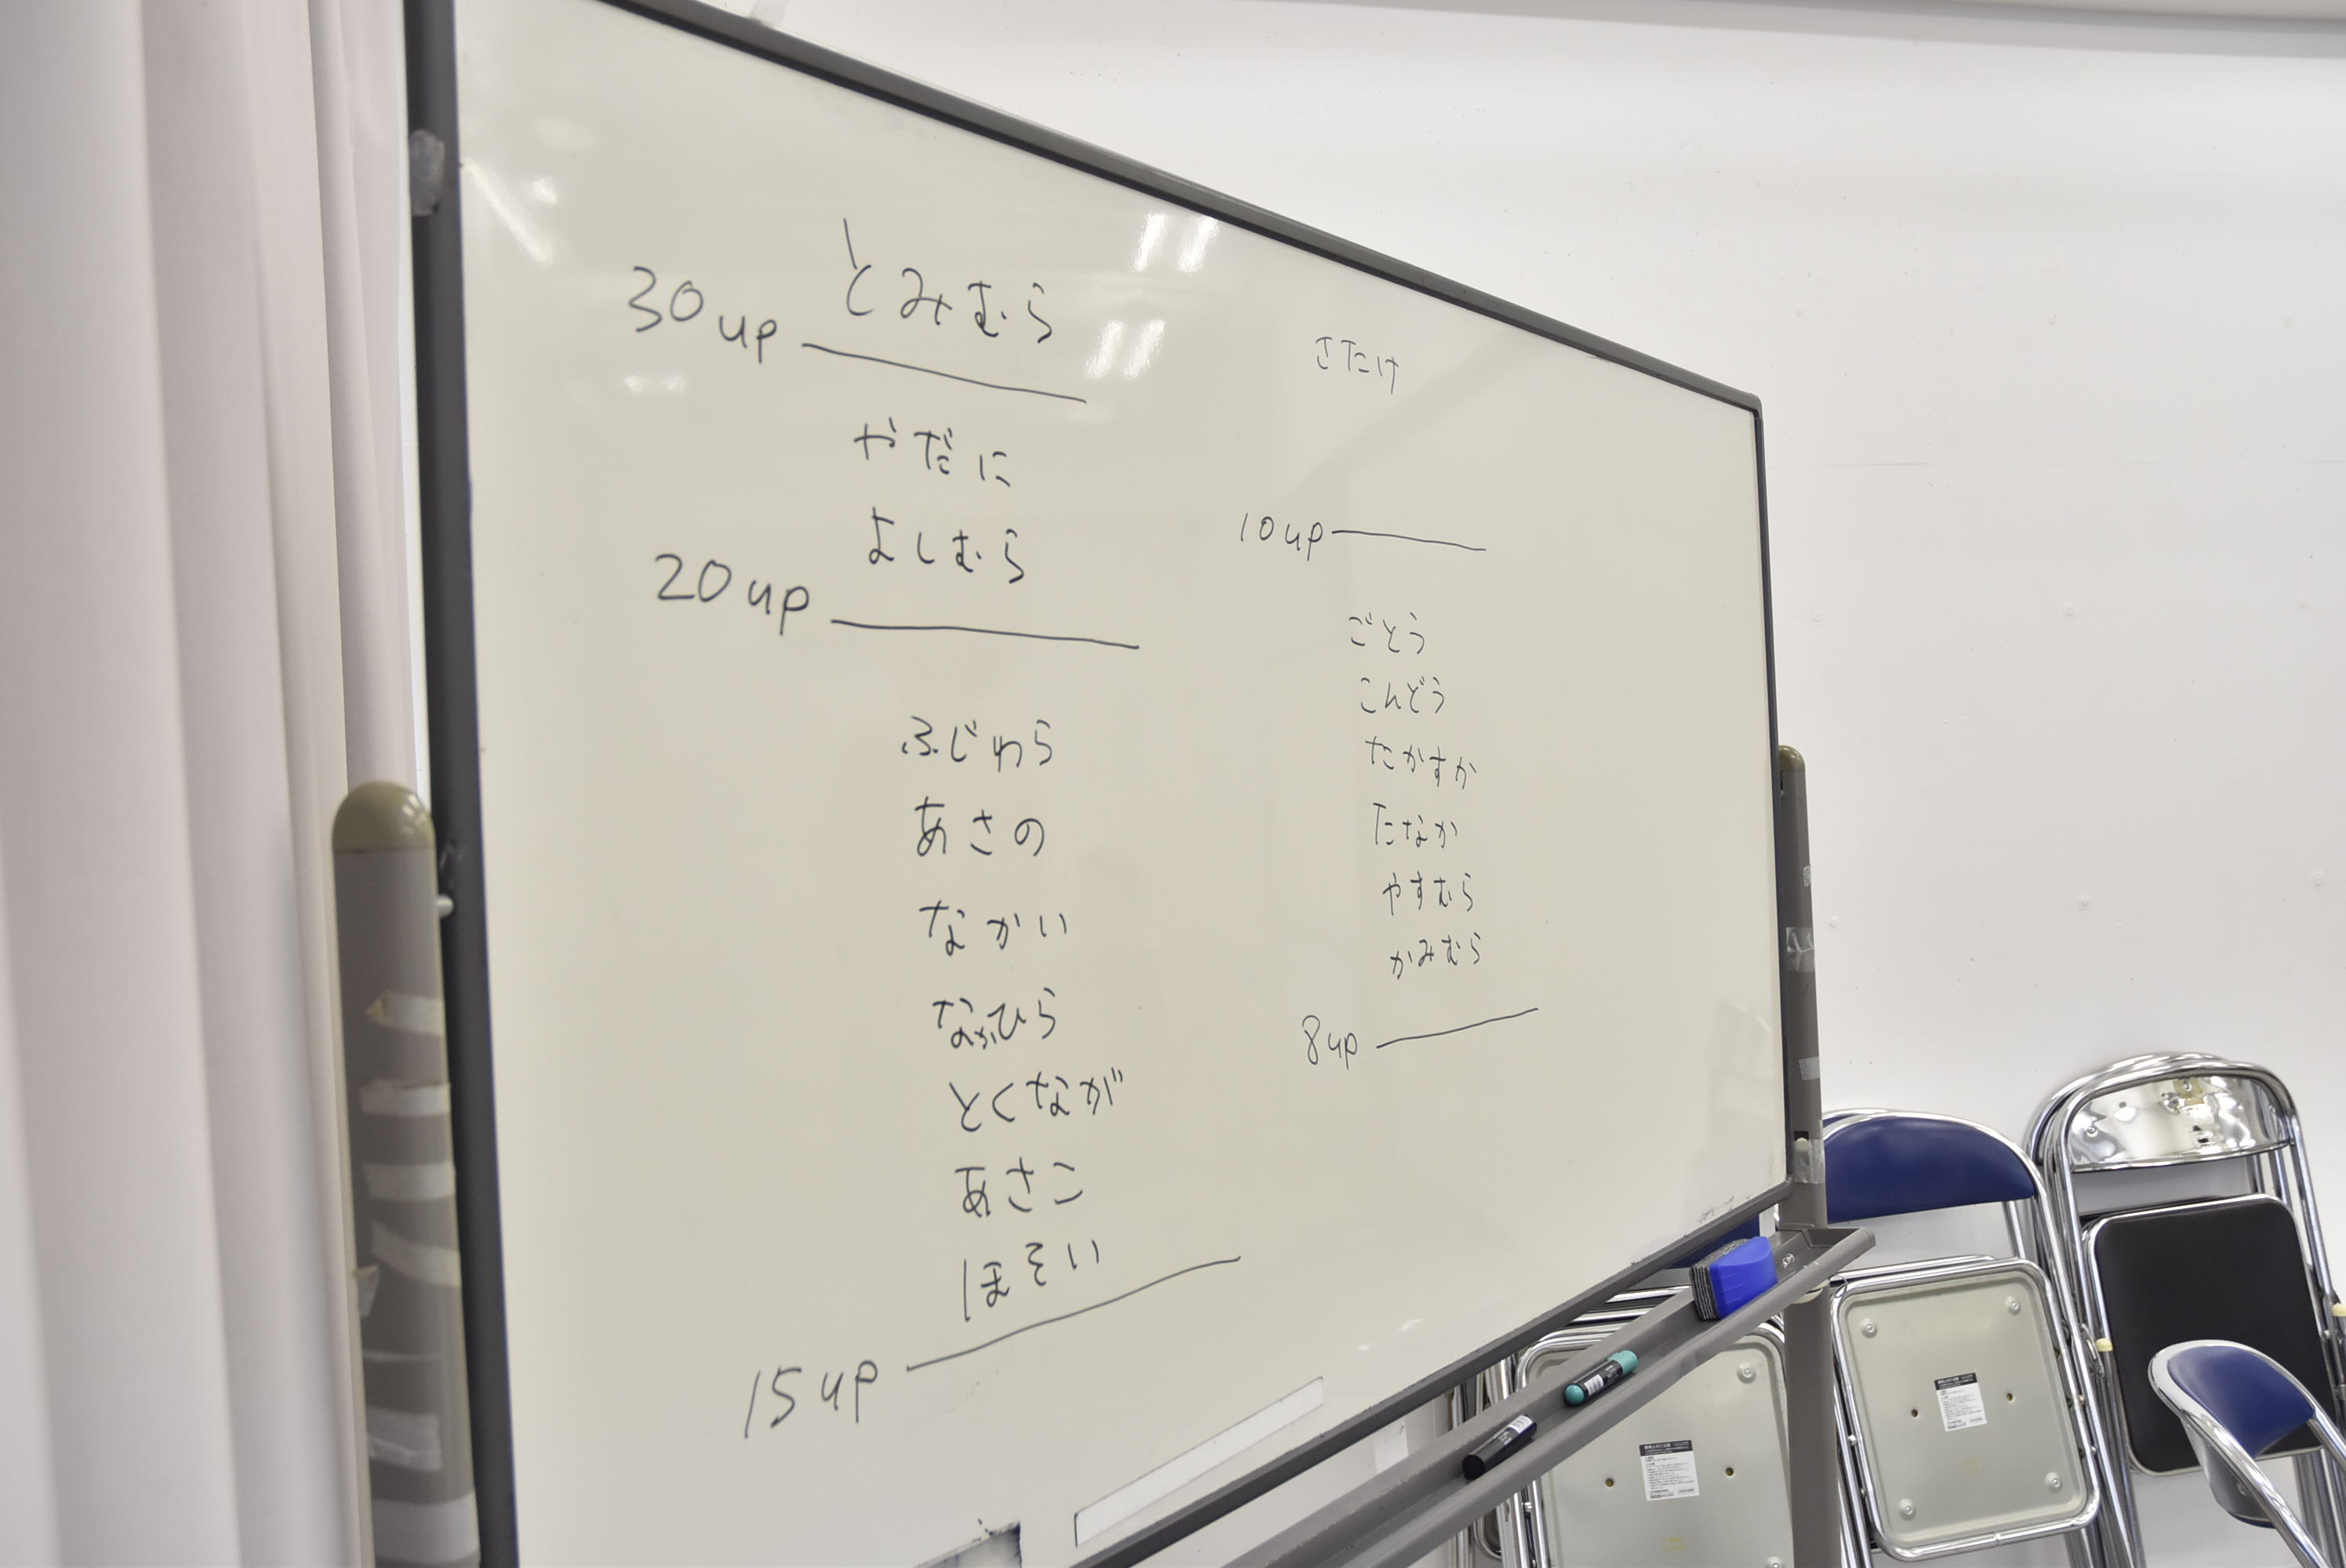 とみむら
30up
やだに
よしむら
20up
ふじわら
あさの
なかい
なかひら
とくなが
あさこ
ほそい
15up
さたけ
10up
ごとう
こんどう
たかすか
たなか
やすむら
かみむら
8up